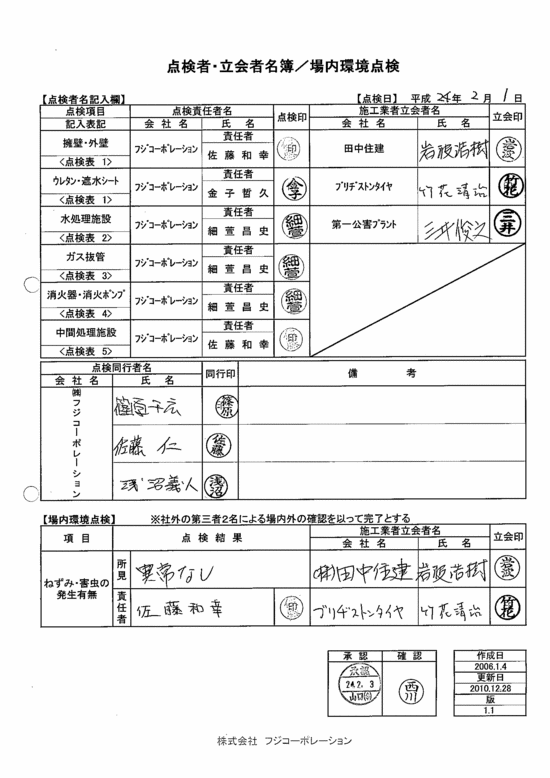 点検者・立会者名簿／場内環境点検
【点検者名記入欄】 【点検日】 平成 24年 2月 1日
点検項目 点検責任者名 点検印 施工業者立会者名 立会印
記入表記 会社名 氏名 会社名 氏名
擁壁・外壁 フジコーポレーション 責任者 印 田中住建 岩波浩樹 岩波
<点検表 1> 佐藤和幸
ウレタン・遮水シート フジコーポレーション 責任者 金子 ブリヂストンタイヤ 竹花清治 竹花
<点検表 1> 金子哲久
水処理施設 フジコーポレーション 責任者 細萱 第一公害プラント 三井俊之 三井
<点検表 2> 細萱昌史
ガス抜管 フジコーポレーション 責任者 細萱
<点検表 3> 細萱昌史
消火器・消火ポンプ フジコーポレーション 責任者 細萱
<点検表 4> 細萱昌史
中間処理施設 フジコーポレーション 責任者 印
<点検表 5> 佐藤和幸
点検同行者名 同行印 備考
会社名 氏名
㈱フジコーポレーション
篠原千広 篠原
佐藤仁 佐藤
浅沼義人 浅沼
【場内環境点検】 ※社外の第三者2名による場内外の確認を以って完了とする
項目 点検結果 施工業者立会者名 立会印
会社名 氏名
ねずみ・害虫の発生有無 所見 異常なし ㈱田中住建 岩波浩樹 岩波
責任者 佐藤和幸 印 ブリヂストンタイヤ 竹花清治 竹花
承認 確認 作成日
24.2.3 山口 西川 2006.1.4
更新日
2010.12.28
版
1.1
株式会社 フジコーポレーション